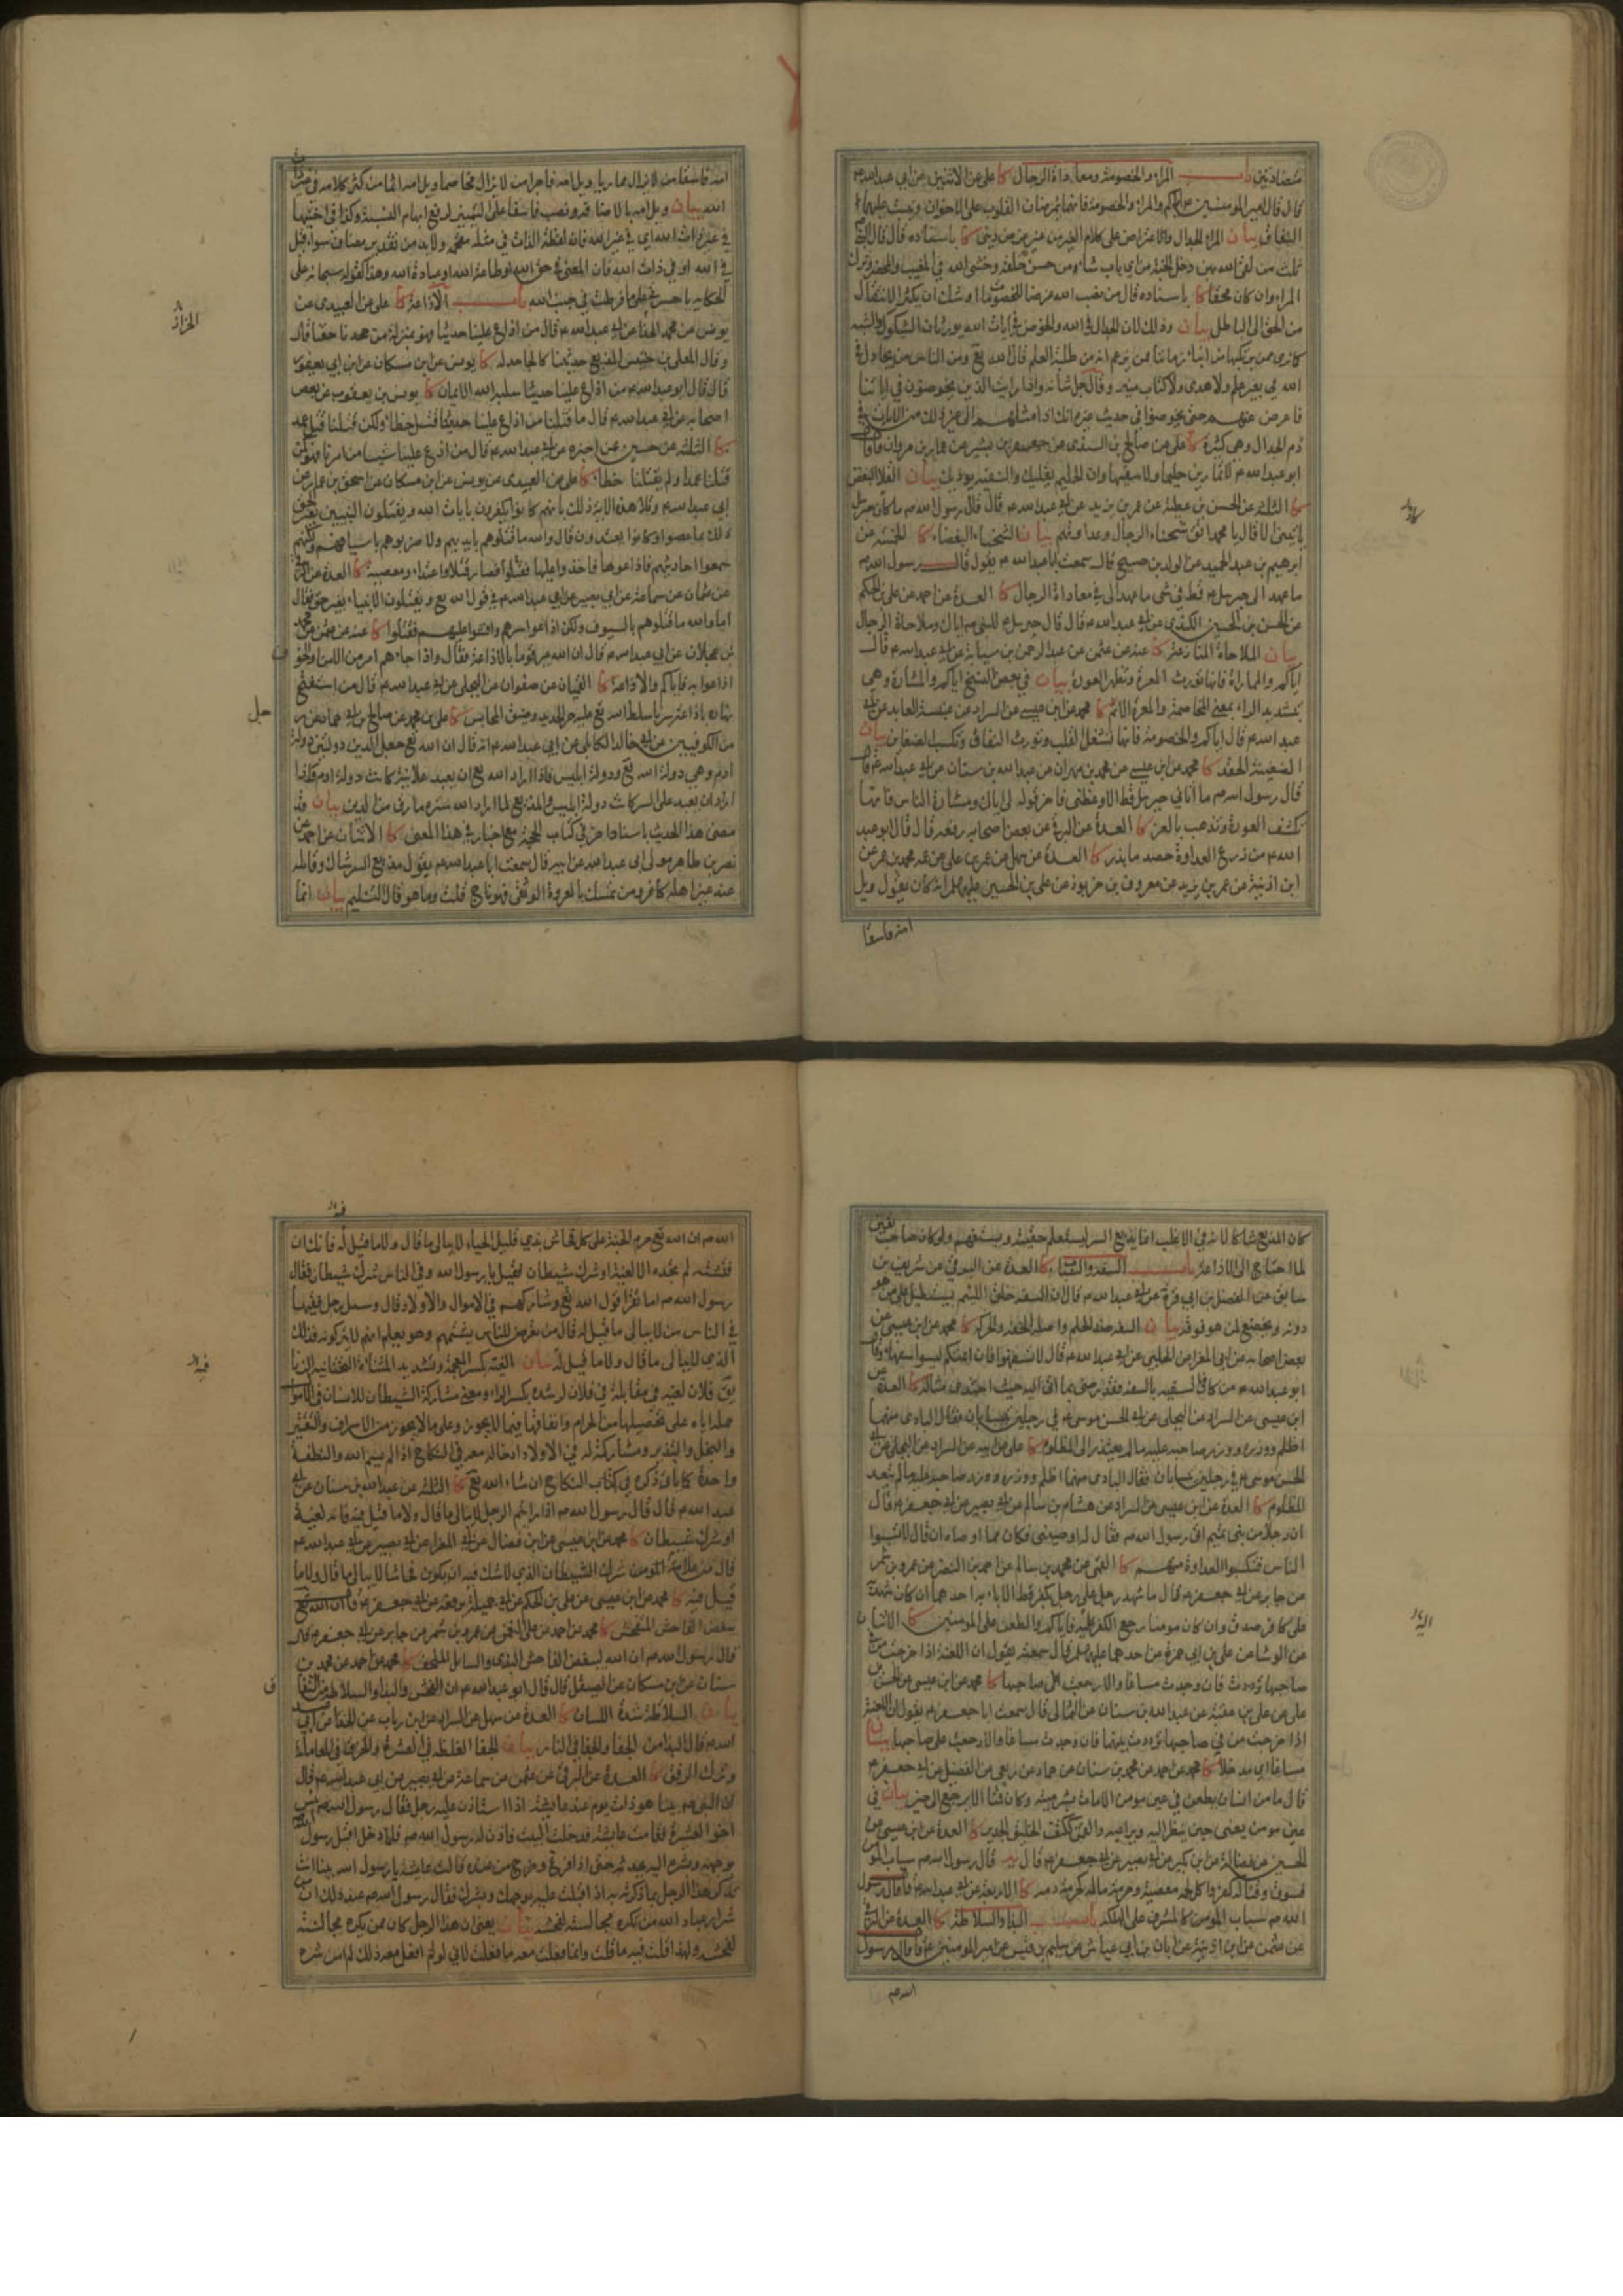 متضادتين باب المراء والخصومة ومعاداة الرجال كا على عن الاثنين عن ابي عبد الله ع
قال قال امير المؤمنين ع اياكم والمراء والخصومة فانهما يمرضان القلوب على الاخوان وينبت عليهما
النفاق بيان المراء الجدال والاعتراض على كلام الغير من غير غرض ديني كا باسناده قال قال النبي ص
ثلث من لقي الله بهن دخل الجنة من اي باب شاء من حسن خلقه وخشى الله في المغيب والمحضر وترك
المراء وان كان محقا كا باسناده قال من نصب الله غرضا للخصومات اوشك ان يكثر الانتقال
من الحق الى الباطل بيان وذلك لان الجدال في الله والخوض في ايات الله يورثان الشكوك والشبه
الله بغير علم ولا هدى ولا كتاب منير وقال جل شانه واذا رايت الذين يخوضون في اياتنا
فاعرض عنهم حتى يخوضوا في حديث غيره انك اذا مثلهم الى غير ذلك من الايات في
ذم الجدال وهي كثيرة كا على عن صالح بن السندى عن جعفر بن بشير عن عمار بن مروان قال قال
ابو عبد الله ع لا تمارين حليما ولا سفيها فان الحليم يقليك والسفيه يؤذيك بيان القلا البغض
كا الثلثة عن الحسن بن عطية عن عمر بن يزيد عن ابي عبد الله ع قال قال رسول الله ص ما كاد جبرئيل
ياتيني الا قال يا محمد اتق شحناء الرجال وعداوتهم بيان الشحناء البغضاء كا الخمسة عن
ابرهيم بن عبد الحميد عن الوليد بن صبيح قال سمعت ابا عبد الله ع يقول قال رسول الله ص
ما عهد الى جبرئيل ع قط في شى ما عهد الى في معاداة الرجال كا العدة عن احمد عن علي بن الحكم
عن الحسن بن الحسين الكندي عن ابي عبد الله ع قال قال جبرئيل ع للنبي ص اياك وملاحاة الرجال
بيان الملاحاة المنازعة كا عنه عن عثمن عن عبد الرحمن بن سيابة عن ابي عبد الله ع قال
اياكم والمماراة فانها تورث المعرة وتظهر العورة بيان في بعض النسخ اياكم والمشارة وهي
بتشديد الراء بمعنى المخاصمة والمعرة الاثم كا محمد عن ابن عيسى عن السراد عن عنبسة العابد عن ابي
عبد الله ع قال اياكم والخصومة فانها تشغل القلب وتورث النفاق وتكسب الضغاين بيان
الضغينة الحقد كا محمد عن ابن عيسى عن محمد بن مهران عن عبد الله بن سنان عن ابي عبد الله ع قال
قال رسول الله ص ما اتاني جبرئيل قط الا وعظني فاخر قوله لي اياك ومشارة الناس فانها
تكشف العورة وتذهب بالعز كا العدة عن البرقي عن بعض اصحابه رفعه قال قال ابو عبد
الله ع من زرع العداوة حصد ما بذر كا العدة عن سهل عن
ابن اذينة عن عمر بن يزيد عن معروف بن خربوذ عن علي بن الحسين عليهما السلم انه كان يقول ويل
امه فاسقا
امه فاسقا من لا يزال مماريا ويل امه فاجرا من لا يزال مخاصما ويل امه اثما من كثر كلامه في غير ذات
الله بيان
في الله او في ذات الله فان المعنى في حق الله او طاعة الله او عبادة الله وهذا كقوله سبحانه على
الحكاية يا حسرتى على ما فرطت في جنب الله باب الاذاعة كا على عن العبيدى عن
الخزاز
يونس عن محمد الخزاز عن ابي عبد الله ع قال من اذاع علينا حديثا فهو بمنزلة من جحدنا حقنا قال
وقال للمعلى بن خنيس المذيع حديثنا كالجاحد له كا يونس عن ابن مسكان عن ابن ابي يعفور
قال قال ابو عبد الله ع من اذاع علينا حديثا سلبه الله الايمان كا يونس بن يعقوب عن بعض
اصحابه عن ابي عبد الله ع قال ما قتلنا من اذاع علينا حديثنا قتل خطاء ولكن قتلنا قتل عمد
كا الثلثة عن حسين عن اخبره عن ابي عبد الله ع قال من اذاع علينا شيئا من امرنا فهو كمن
قتلنا عمدا ولم يقتلنا خطاء كا على عن العبيدى عن يونس عن ابن مسكان عن اسحق بن عمار عن
ابي عبد الله ع وتلا هذه الاية ذلك بانهم كانوا يكفرون بايات الله ويقتلون النبيين بغير الحق
ذلك بما عصوا وكانوا يعتدون قال والله ما قتلوهم بايديهم ولا ضربوهم باسيافهم ولكنهم
سمعوا احاديثهم فاذاعوها فاخذوا عليها فقتلوا فصار قتلا واعتداء ومعصية كا العدة عن البرقي
عن عثمان عن سماعة عن ابي بصير عن ابي عبد الله ع في قول الله تع ويقتلون الانبياء بغير حق فقال
اما والله ما قتلوهم بالسيوف ولكن اذاعوا سرهم وافشوا عليهم فقتلوا كا عنه عن عثمن عن محمد
بن عجلان عن ابي عبد الله ع قال ان الله عير قوما بالاذاعة فقال واذا جاءهم امر من الامن او الخوف
اذاعوا به فاياكم والاذاعة كا القميان عن صفوان عن البجلى عن ابي عبد الله ع قال من استفتح
نهاره باذاعة سرنا سلط الله تع عليه حر الحديد وضيق المحابس كا على بن محمد عن صالح بن ابي حماد عن رجل
من الكوفيين عن ابي خالد الكابلى عن ابي عبد الله ع انه قال ان الله تع جعل الدين دولتين دولة
ادم وهي دولة الله تع ودولة ابليس فاذا اراد الله تع ان يعبد علانية كانت دولة ادم واذا
اراد ان يعبد على السر كانت دولة ابليس والمذيع لما اراد الله ستره مارق من الدين بيان قد
مضى هذا الحديث باسناد اخر في كتاب الحجة مع اخبار في هذا المعنى كا الاثنان عن احمد عن
نصر بن طاهر مولى ابي عبد الله عن ابيه قال سمعت ابا عبد الله ع يقول مذيع السر شاك وقائله
عند غير اهله كافر ومن تمسك بالعروة الوثقى فهو ناج قلت وما هو قال التسليم بيان انما
كان المذيع شاكا لانه في الاغلب انما يذيع السر ليستعلم حقيته ويستفهم ولو كان صاحب يقين
لما احتاج الى الاذاعة باب السفه والسباب كا العدة عن البرقي عن شريف بن
سابق عن الفضل بن ابي قرة عن ابي عبد الله ع قال ان السفه خلق لئيم يستطيل على من هو
دونه ويخضع لمن هو فوقه بيان السفه ضد الحلم واصله الخفة والحركة كا محمد عن ابن عيسى عن
بعض اصحابه عن ابي المغرا عن الحلبي عن ابي عبد الله ع قال لا تسفهوا فان ائمتكم ليسوا بسفهاء وقال
ابو عبد الله ع من كافى السفيه بالسفه فقد رضى بما اتى اليه حيث احتذى مثاله كا العدة عن
ابن عيسى عن السراد عن البجلى عن ابي الحسن موسى ع في رجلين يتسابان فقال البادى منهما
اظلم ووزره ووزر صاحبه عليه ما لم يعتذر الى المظلوم كا على عن ابيه عن السراد عن البجلى عن ابي
الحسن موسى ع في رجلين يتسابان فقال البادى منهما اظلم ووزره ووزر صاحبه عليه ما لم يتعد
المظلوم كا العدة عن ابن عيسى عن السراد عن هشام بن سالم عن ابي بصير عن ابي جعفر ع قال
ان رجلا من بنى تميم اتى رسول الله ص فقال له اوصيني فكان مما اوصاه ان قال لا تسبوا
الناس فتكسبوا العداوة منهم كا القمى عن محمد بن سالم عن احمد بن النضر عن عمرو بن شمر
عن جابر عن ابي جعفر ع قال ما شهد رجل على رجل بكفر قط الا باء به احدهما ان كان شهد
على كافر صدق وان كان مومنا رجع الكفر عليه فاياكم والطعن على المومنين كا الاثنان
عن الوشا عن علي بن ابي حمزة عن احدهما عليهما السلم قال سمعته يقول ان اللعنة اذا خرجت من في
صاحبها ترددت فان وجدت مساغا والا رجعت على صاحبها كا محمد عن ابن عيسى عن الحسن بن
علي عن علي بن عقبة عن عبد الله بن سنان عن الثمالى قال سمعت ابا جعفر ع يقول ان اللعنة
اذا خرجت من في صاحبها ترددت بينهما فان وجدت مساغا والا رجعت على صاحبها بيان
مساغا اي مدخلا كا محمد عن احمد عن محمد بن سنان عن حماد عن ربعى عن الفضيل عن ابي جعفر ع
قال ما من انسان يطعن في عين مومن الا مات بشر ميتة وكان قمنا الا يرجع الى خير بيان في
عين مومن يعني حين ينظر اليه ويراعيه والقمن ككتف الخليق الجدير كا العدة عن ابن عيسى عن
الحسين عن فضالة عن ابن بكير عن ابي بصير عن ابي جعفر ع قال قال رسول الله ص سباب المومن
فسوق وقتاله كفر واكل لحمه معصية وحرمة ماله كحرمة دمه كا الاربعة عن ابي عبد الله ع قال قال رسول
الله ص سباب المومن كالمشرف على الهلكة باب البذاء والسلاطة كا العدة عن البرقي
عن عثمن عن ابن اذينة عن ابان بن ابي عياش عن سليم بن قيس عن امير المومنين ع قال قال رسول
الله ص
الله ص ان الله تع حرم الجنة على كل فحاش بذي قليل الحياء لا يبالي ما قال ولا ما قيل له فانك ان
فتشته لم تجده الا لغية او شرك شيطان فقيل يا رسول الله وفي الناس شرك شيطان فقال
رسول الله ص اما تقرا قول الله تع وشاركهم في الاموال والاولاد قال وسئل رجل فقيها
في الناس من لا يبالي ما قيل له قال من تعرض للناس يشتمهم وهو يعلم انهم لا يتركونه فذلك
الذي لا يبالي ما قال ولا ما قيل له بيان
فيه
يق فلان لغية في مقابلة فلان لرشده بكسر الراء ومعنى مشاركة الشيطان للانسان في الاموال
حمله اياه على تحصيلها من الحرام وانفاقها فيما لا يجوز وعلى ما لا يجوز من الاسراف والتقتير
والبخل والتبذير ومشاركته له في الاولاد ادخاله معه في النكاح اذا لم يسم الله والنطفة
واحدة كما ياتي ذكره في كتاب النكاح ان شاء الله تع كا الثلثة عن عبد الله بن سنان عن ابي
عبد الله ع قال قال رسول الله ص اذا رايتم الرجل لا يبالي ما قال ولا ما قيل فيه فانه لغية
او شرك شيطان كا محمد عن ابن عيسى عن ابن فضال عن ابي المغرا عن ابي بصير عن ابي عبد الله ع
قال من علامة شرك الشيطان الذي لا شك فيه ان يكون فحاشا لا يبالي ما قال ولا ما
قيل فيه كا محمد عن ابن عيسى عن علي بن الحكم عن ابي جميلة يرفعه عن ابي جعفر ع قال ان الله تع
يبغض الفاحش المتفحش كا محمد عن احمد عن علي بن النعمن عن عمرو بن شمر عن جابر عن ابي جعفر ع قال
قال رسول الله ص ان الله يبغض الفاحش البذى والسائل الملحف كا محمد عن احمد عن محمد بن
سنان عن ابن مسكان عن الصيقل قال قال ابو عبد الله ع ان الفحش والبذا والسلاطة من النفاق
بيان السلاطة شدة اللسان كا العدة عن سهل عن السراد عن ابن رياب عن الحذا عن ابي عبد
الله ع قال البذا من الجفا والجفا في النار بيان الجفا الغلظة في العشرة والخرق في المعاملة
وترك الرفق كا العدة عن البرقي عن عثمن عن سماعة عن ابي بصير عن ابي عبد الله ع قال
ان النبي ص بينا هو ذات يوم عند عايشة اذا استاذن عليه رجل فقال رسول الله ص بئس
اخو العشيرة فقامت عايشة فدخلت البيت فاذن له رسول الله ص فلما دخل اقبل رسول الله
بوجهه وبشره اليه يحدثه حتى اذا فرغ وخرج من عنده قالت عايشة يا رسول الله بينا انت
تذكر هذا الرجل بما ذكرته به اذ اقبلت عليه بوجهك وبشرك فقال رسول الله ص عند ذلك ان من
شرار عباد الله من تكره مجالسته لفحشه بيان يعني ان هذا الرجل كان ممن يكره مجالسته
لفحشه ولهذا قلت فيه ما قلت وانما فعلت معه ما فعلت لاني لو لم افعل معه ذلك لم امن شره